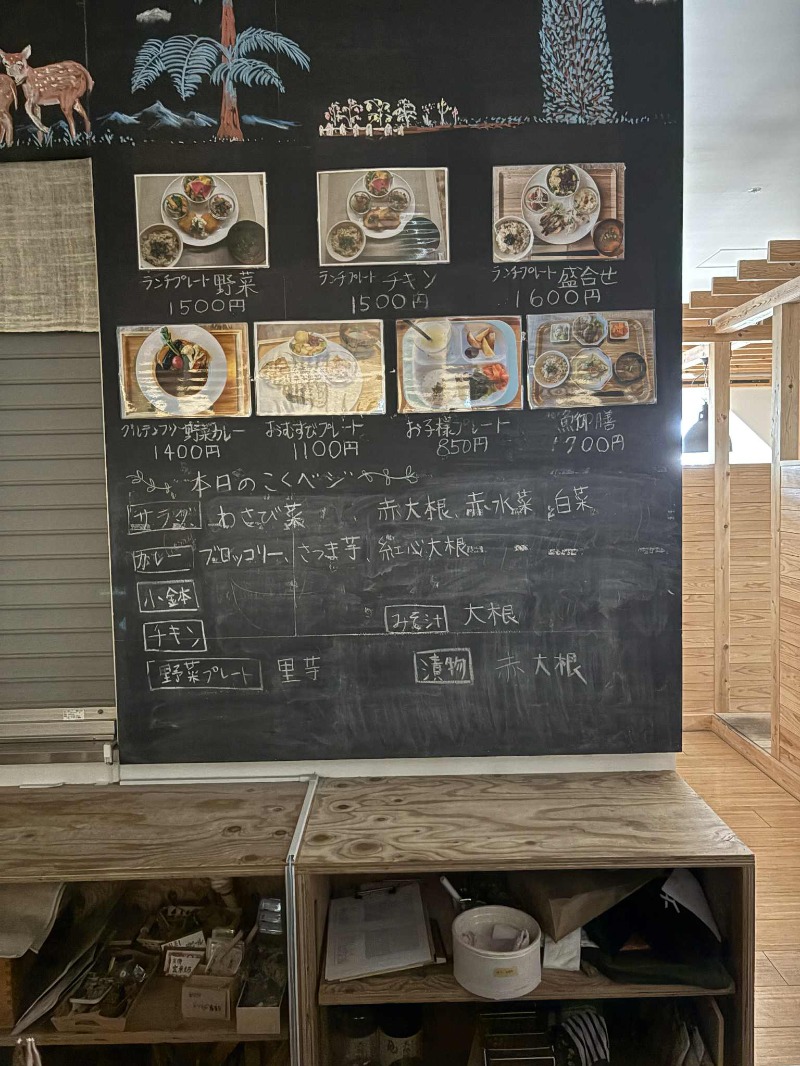 ランチプレート 野菜
1500円
ランチプレート チキン
1500円
ランチプレート 盛合せ
1600円
グルテンフリー野菜カレー
1400円
おむすびプレート
1100円
お子様プレート
850円
魚御膳
1700円
本日のこくベジ
サラダ わさび菜 、 赤大根、赤水菜 白菜
カレー ブロッコリー、さつま芋、紅心大根
小鉢
みそ汁 大根
チキン
野菜プレート 里芋
漬物 赤大根